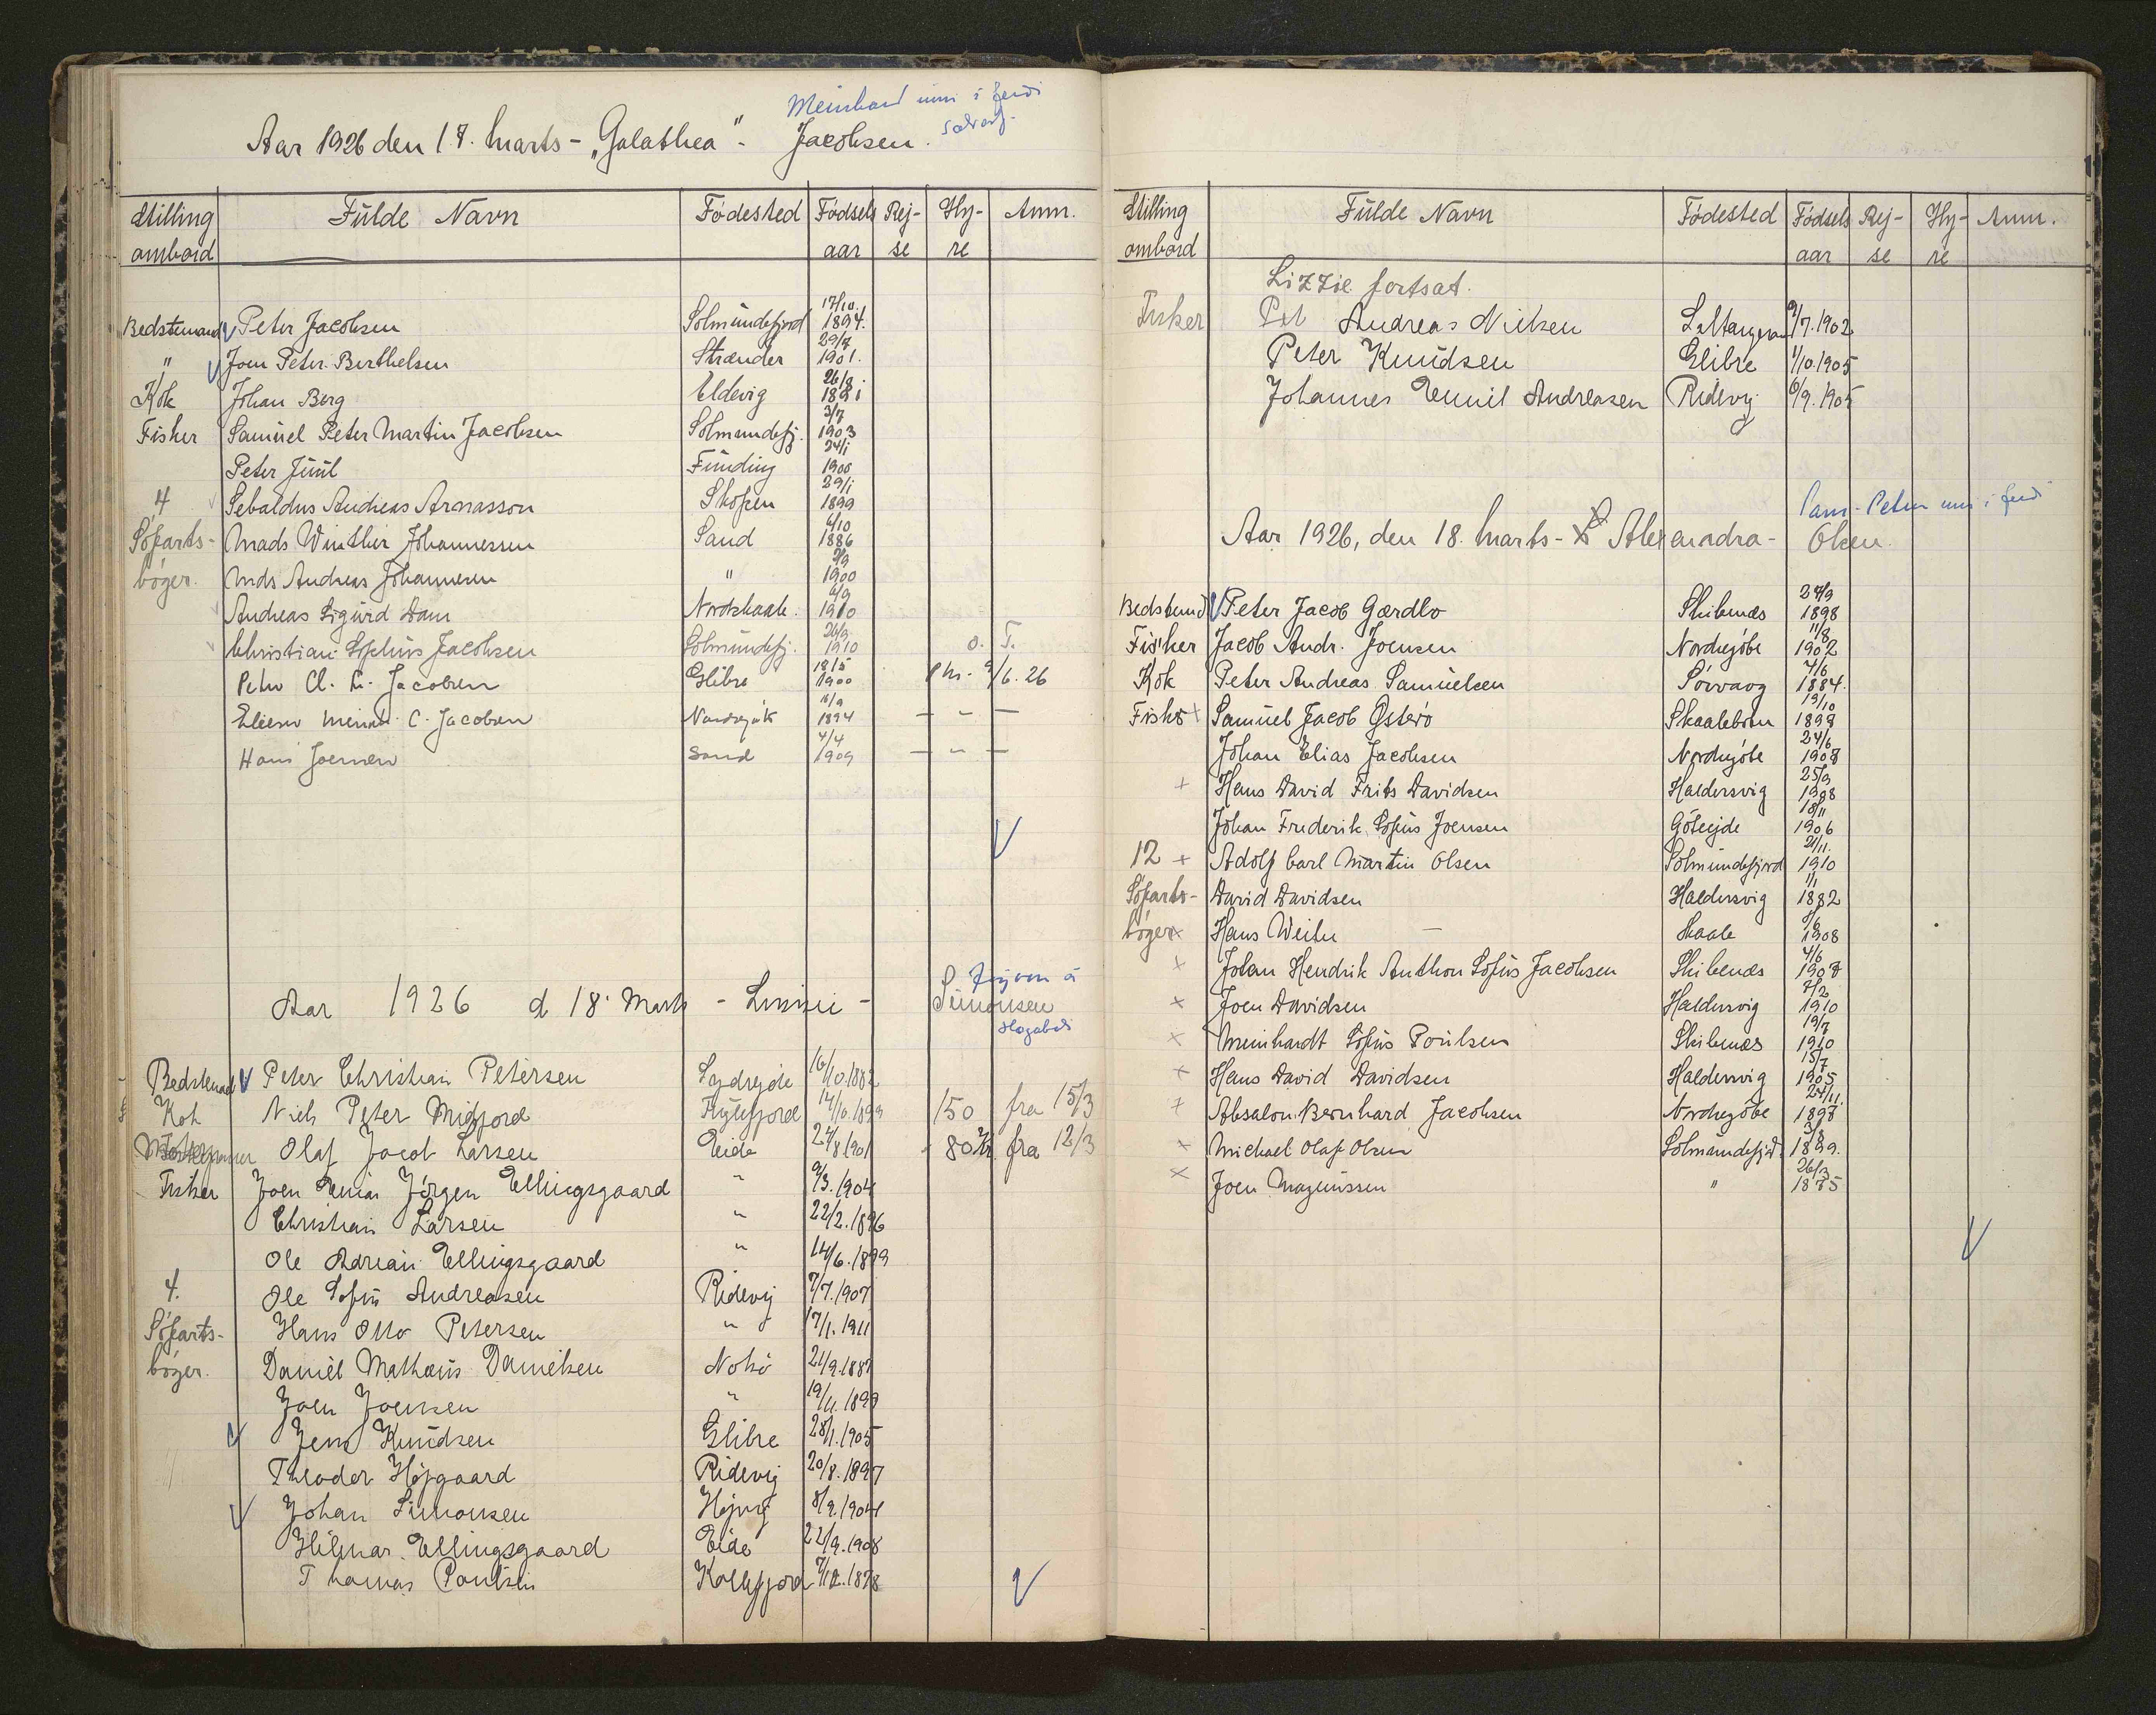 Meinhard inni í ferdi
Aar 1926 den 17. Marts - „Galathea". Jacobsen.
Stilling ombord Fulde Navn Fødested Fødselsaar Rej-se Hy-re Anm.
Bedstemand Peter Jacobsen Solmundefjord 17/10. 1894.
" Joen Peter Berthelsen Strænder 29/7 1901.
Kok Johan Berg Eldevig 26/8
Fisker Samuel Peter Martin Jacobsen Solmundefj. 3/7 1903
Peter Juul Funding 24/1 1900
4 Sebaldus Andreas Arnasson Skopen 29/1 1899
Søfarts- Mads Winther Johannessen Sand 6/10 1886
bøger. Mds Andreas Johannesen " 2/9 1900
Andreas Sigurd Dam Nordskaale. 6/9 1910
Christian Sophus Jacobsen Solmundefj. 26/9 1910 O. T.
Peter Cl. L. Jacobsen Glibre 18/5 1900 9/6. 26
C. Jacobsen 1894 — " —
Hans Joensen Sand 4/4 1909 — " —
Aar 1926 d 18. Marts - - Simonsen
Bedstemad Peter Christian Petersen Sydregøte 16/10.1882
Kok Niels Peter Midjord 14/10.1899 150 fra 15/3
Olaf Jacob Larsen Eide 27/8 1901 80 Kr. fra 12/3
Fisker Joen Jørgen Ellingsgaard " 9/3.1904
Christian Larsen " 22/2.1896
Ole Adrian Ellingsgaard " 14/6.1899
4. Ole Sofus Andreasen Ridevig 7/7.1907
Søfarts- Hans Otto Petersen " 17/1.1911
bøger. Daniel Mathæus Danielsen Nolsö 21/9.1887
Joen Joensen " 19/11.1899
Jens Knudsen Glibre 28/1.1905
Theodor Højgaard Ridevig 20/8.1897
Johan Simonsen 8/9.1904
Hilmar Ellingsgaard Eide 22/9.1908
Thomas Poulsen Kollefjord 7/12.1878
Stilling ombord Fulde Navn Fødested Fødselsaar Rej-se Hy-re Anm.
Lizzie fortsat.
Fisker Pet Andreas Nielsen Saltangeraa 9/7.1902
Peter Knudsen Glibre 1/10.1905
Johannes Emil Andreasen Ridevig 6/9.1905
Sam-Petur inni í ferdi
Aar 1926, den 18. Marts - Alexandra - Olsen.
Bedstemd Peter Jacob Gærdbo Skibenæs 24/9 1898
Fisker Jacob Andr. Joensen Nordregøte 11/8 1902
Kok Peter Andreas Samuelsen Sörvaag 7/6 1884.
Fisker + Samuel Jacob Østerö Skaalebotn 19/10 1898
Johan Elias Jacobsen Nordregøte 24/6 1908
+ Hans David Frits Davidsen Haldersvig 25/9 1908
Johan Frederik Sofus Joensen Gøtegjde 18/11 1906
12 + Adolf Carl Martin Olsen Solmundefjord 21/11. 1910
Søfarts- David Davidsen Haldersvig 1/1 1882
bøger + Hans Weihe — Skaale 8/6 1908
+ Johan Hendrik Anthon Sofus Jacobsen Skibenæs 4/6 1908
+ Joen Davidsen Haldersvig 7/2 1910
+ Meinhardt Sofus Poulsen Skibenæs 19/7 1910
+ Hans David Davidsen Haldersvig 15/7 1905
+ Absalon Bernhard Jacobsen Nordregøte 27/11. 1898
+ Michael Olaf Olsen Solmundefjd. 3/8 1899.
+ Joen Magnussen " 26/3 1875